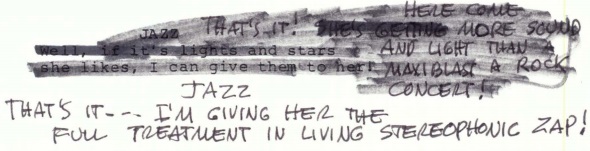 HERE COME
JAZZ THAT'S IT! SHE'S GETTING MORE SOUND
Well, if it's lights and stars AND LIGHT THAN A
she likes, I can give them to her! MAXIBLAST A ROCK
JAZZ CONCERT!
THAT'S IT--- I'M GIVING HER THE
FULL TREATMENT IN LIVING STEREOPHONIC ZAP!